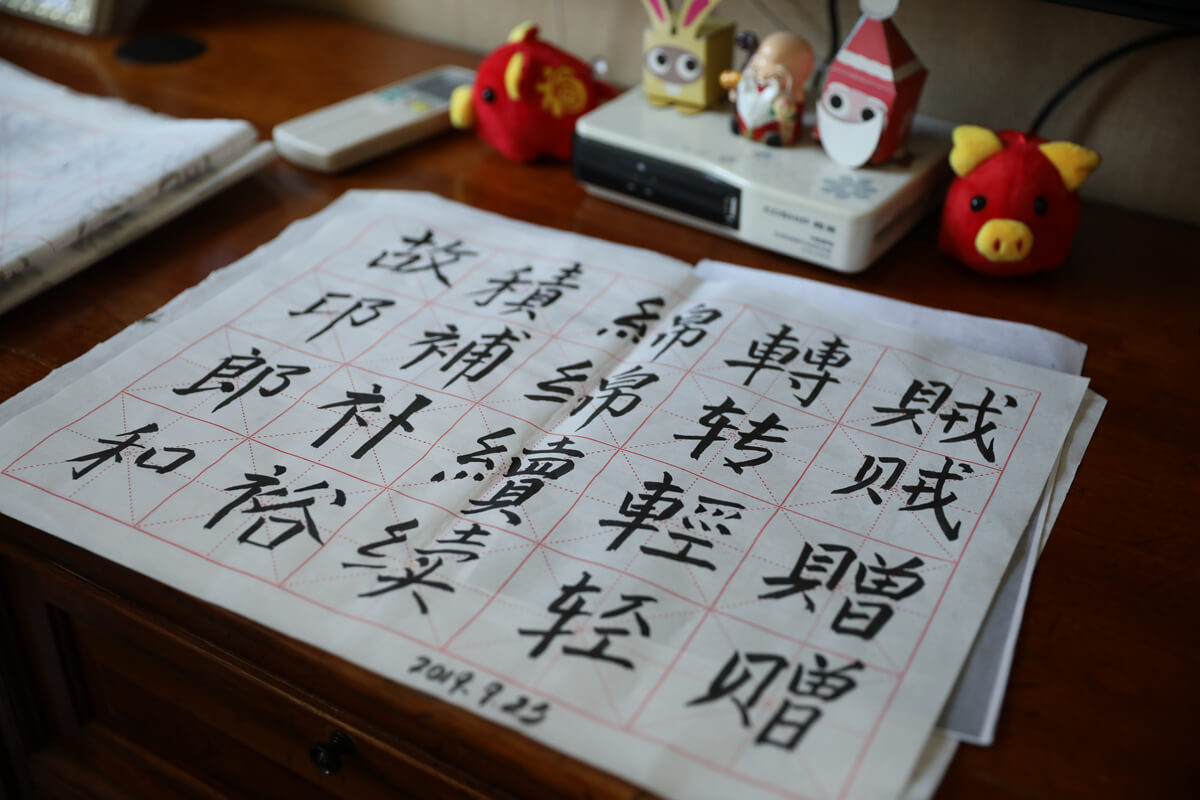 賊贼贈赠
轉转輕轻
綿绵續续
積補补裕
故邛郎和
2019.9.23